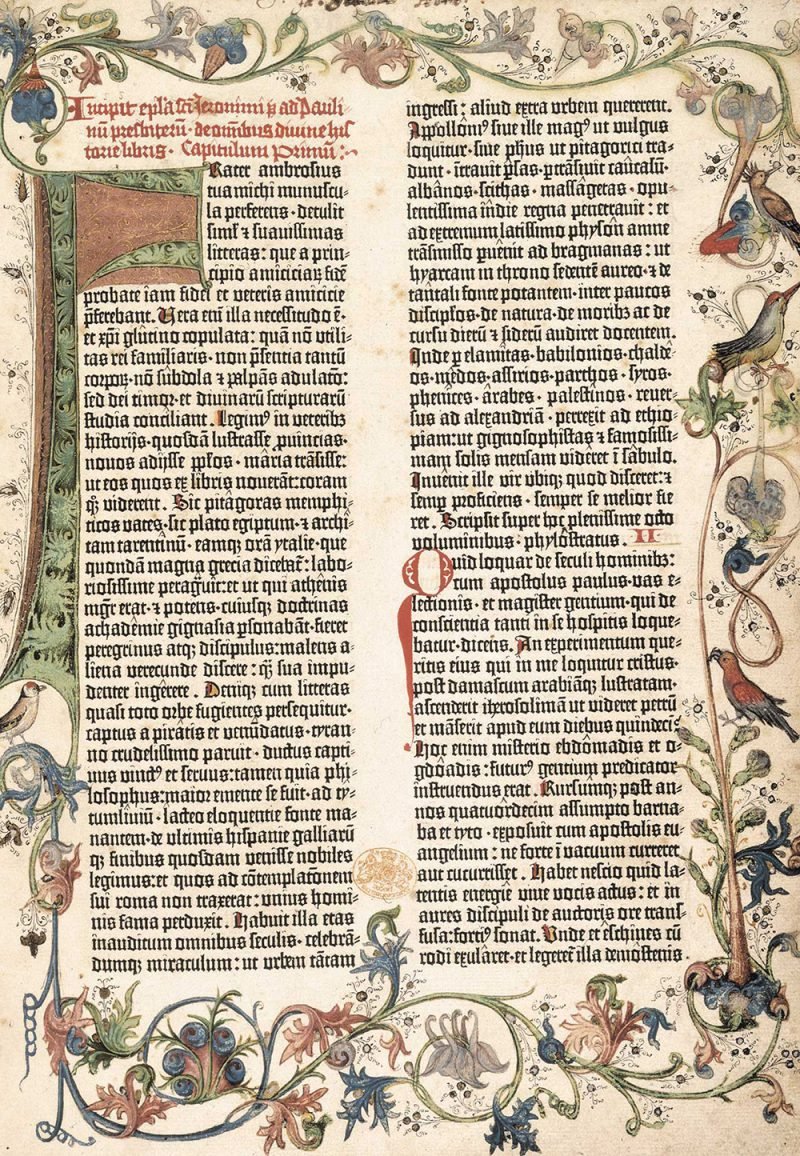 Incipit epl̃a sc̃ti Jeronimi p̃ ad Pauli-
nũ presbiterũ · de om̃nibus diuine his-
torie libris · Capitulum Primũ:
Frater ambrosius
tua michi munuscu-
la perferens · detulit
siml̃ ꝛ suauissimas
litteras: que a prin-
cipio amiciciaꝝ fidẽ
probate iam fidei et veteris amicicie
p̃ferebant. Uera eñi illa necessitudo ẽ·
et xp̃i glutino copulata: quã nõ vtili-
tas rei familiaris · non p̃sentia tantũ
corpoꝝ · nõ subdola ꝛ palpãs adulatõ:
sed dei timor · et diuinarũ scripturarũ
studia conciliant. Legimꝰ in veteribꝫ
historijs · quosdã lustrasse ꝓuincias ·
nouos adijsse pp̃los · maria trãsisse:
ut eos quos eꝫ libris nouerãt: coram
qꝫ viderent. Sic pitagoras memphi-
ticos vates · sic plato egiptum · ꝛ archi-
tam tarentinũ · eamqꝫ orã ytalie · que
quondã magna grecia dicebat̃: labo-
riosissime peragͣuit: et ut qui athẽnis
mgr̃ erat · ꝛ potens · cuiusqꝫ doctrinas
achademie gignasia ꝑsonabãt · fieret
peregrinus atqꝫ discipulus: malens a-
liena verecunde discere: qꝫ sua impu-
denter ingerere. Deniqꝫ cum litteras
quasi toto orbe fugientes persequitur ·
captus a piratis et venũdatus · tyran-
no crudelissimo paruit · ductus capti-
uus vinctꝰ et seruus: tamen quia phi-
losophus: maior emente se fuit · ad ty-
tumliuiũ · lacteo eloquentie fonte ma-
nantem · de vltimis hispanie galliarũ
qꝫ finibus quosdam venisse nobiles
legimus: et quos ad cõtemplatonem
sui roma non traxerat: vnius homi-
nis fama perduxit. Habuit illa etas
inauditum omnibus seculis · celebrã-
dumqꝫ miraculum: ut vrbem tãtam
ingressi: aliud extra vrbem quererent.
Appolloniꝰ siue ille magꝰ ut vulgus
loquitur · siue ph̃us ut pitagorici tra-
dunt · ĩtrauit ꝑsas · ꝑtrãsiuit caucasũ ·
albanos · scithas · massagetas · opu-
lentissima indie regna penetrauit: et
ad extremum latissimo physon amne
trãsmisso ꝑuẽit ad bragmanas: ut
hyarcam in throno sedentẽ aureo · ꝛ de
tantali fonte potantem · inter paucos
discipl̃os · de natura · de moribꝫ ac de
cursu dierũ ꝛ siderũ audiret docentem.
Inde ꝑ elamitas · babilonios · chalde-
os · medos · assirios · parthos · syros ·
phenices · arabes · palestinos · reuer-
sus ad alexandriã · perrexit ad ethio-
piam: ut gignosophistas ꝛ famosissi-
mam solis mensam videret ĩ sabulo.
Inuenit ille vir vbiqꝫ quod disceret: ꝛ
semꝑ proficiens · semper se melior fie-
ret. Scripsit super hoc plenissime octo
voluminibus · phylostratus. II
Quid loquar de seculi hominibꝫ:
cum apostolus paulus · vas e-
lectionis · et magister gentium · qui de
conscientia tanti in se hospitis loque-
batur · dicens. An experimentum que-
ritis eius qui in me loquitur cristus ·
post damascum arabiãqꝫ lustratam ·
ascenderit iherosolimã ut videret petrũ
et mãserit apud eum diebus quindeci͂.
Hoc enim misterio ebdomadis et o-
gdoadis: futurꝰ gentium predicator
instruendus erat. Rursumqꝫ post an-
nos quatuordecim assumpto barna-
ba et tyto · exposuit cum apostolis eu-
angelium: ne forte ĩ vacuum curreret
aut cucurrisset. Habet nescio quid la-
tentis energie viue vocis actus: et in
aures discipuli de auctoris ore trans-
fusa: fortiꝰ sonat. Unde et eschines cũ
rodi exularet · et legeret̃ illa demostenis ·